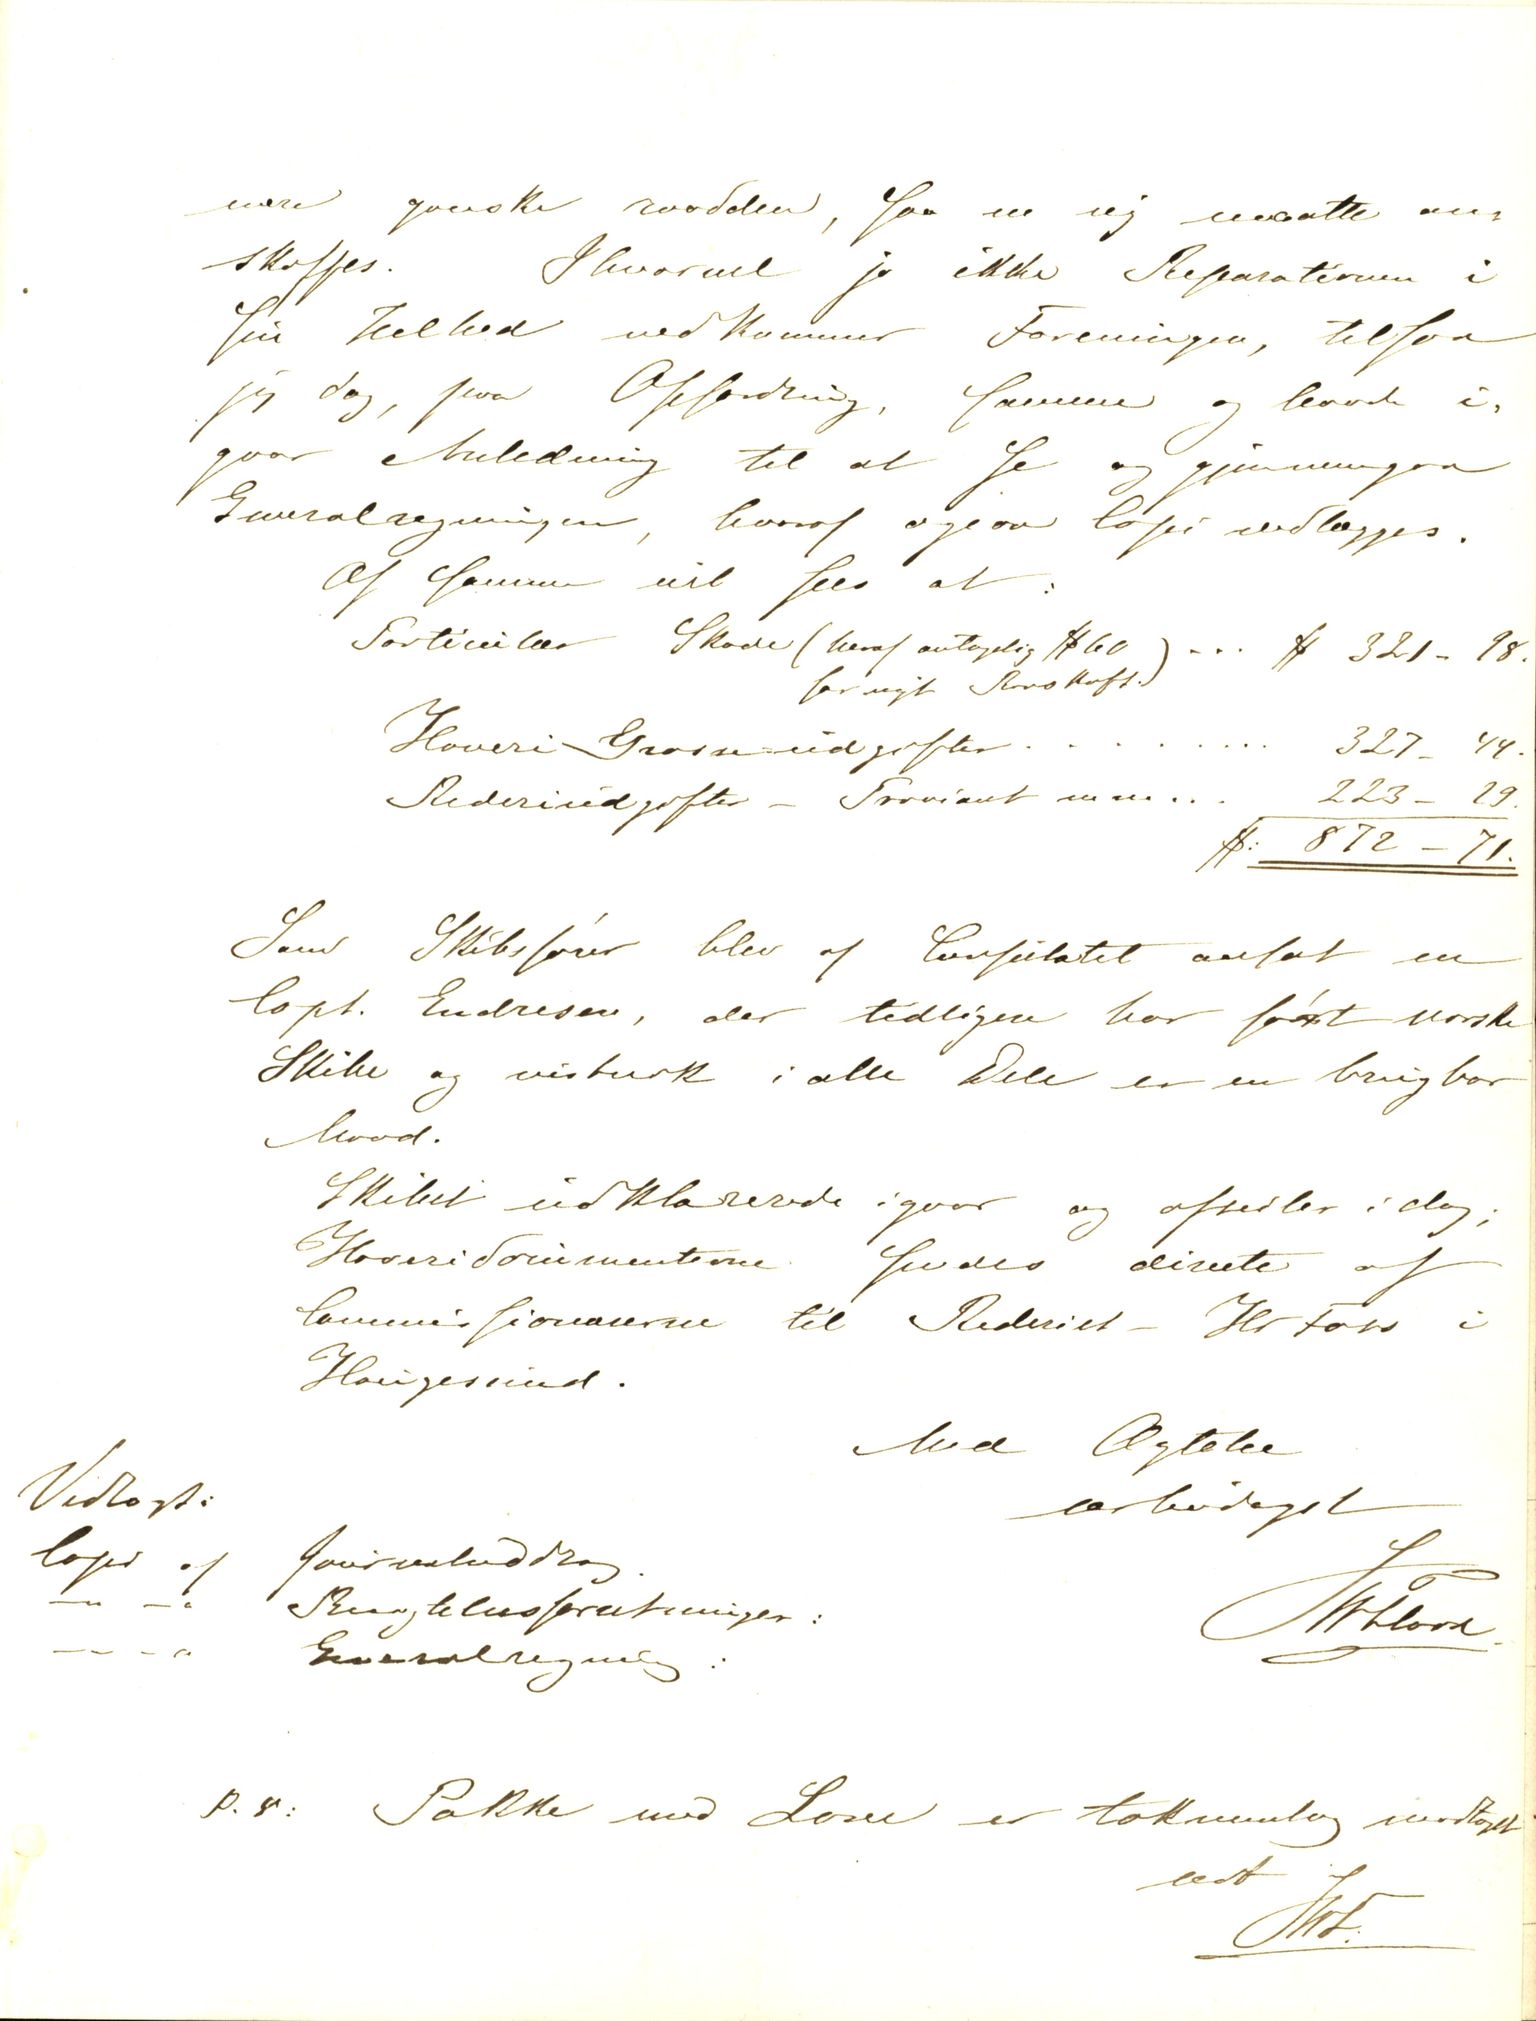 være ganske raadden, saa en ny maatte an-
skaffes. Ihvorvel jo ikke Reparationen i
sin Helhed vedkommer Foreningen, tilsaa
jeg dog, paa Opfordring, samme og havde i-
gaar Anledning til at se og gjennemgaa
Generalregningen, hvoraf ogsaa Copi vedlægges.
Af samme vil sees at:
Particulær Skade (heraf antagelig $ 60 ) ... $ 321 - 98.
for nyt Rorskaft.
Haveri Grosse udgifter . . . . . . . . . . 327 - 44.
Rederiudgifter - Proviant m m... 223 - 29.
$: 872 - 71.
Som Skibsfører blev af Consulatet ansat en
Capt. Endresen, der tidligere har ført norske
Skibe og vistnok i alle Dele er en brugbar
Mand.
Skibet udklarerede igaar og afseiler idag;
Haveridocumenterne sendes directe af
Commissionærerne til Rederiet - Hr Foss i
Haugesund.
Med Agtelse
ærbødigst
Vedlagt:
Copi af Journaluddrag
— " — " Besigtelsesforretninger:
— " — " Generalregning:
P. S: Pakke med Love er taknemlig modtaget